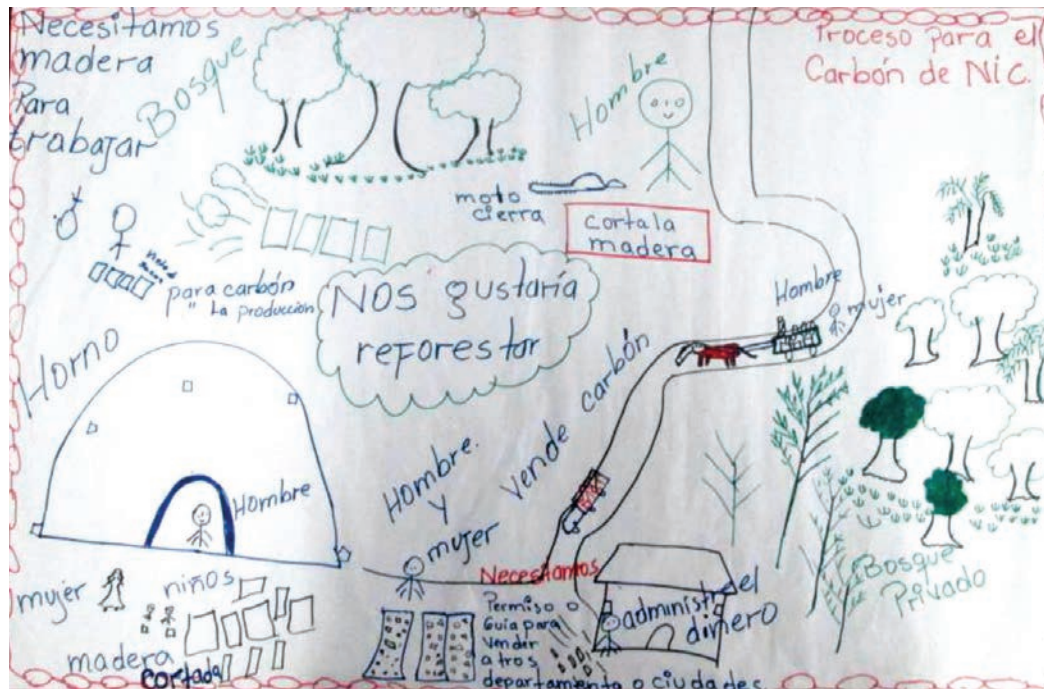 Necesitamos
madera
Para
trabajar
Bosque
Hombre
Proceso para el
Carbón de Nic.
moto
cierra
corta la
madera
para carbón
" La producción
Nos gustaría
reforestar
Hombre
mujer
Horno
Hombre
vende carbón
Hombre.
y
mujer
mujer
niños
madera
cortada
Necesitamos
Permiso o
Guia para
vender
a tros
departamento o ciudades
administra el
dinero
Bosque
Privado